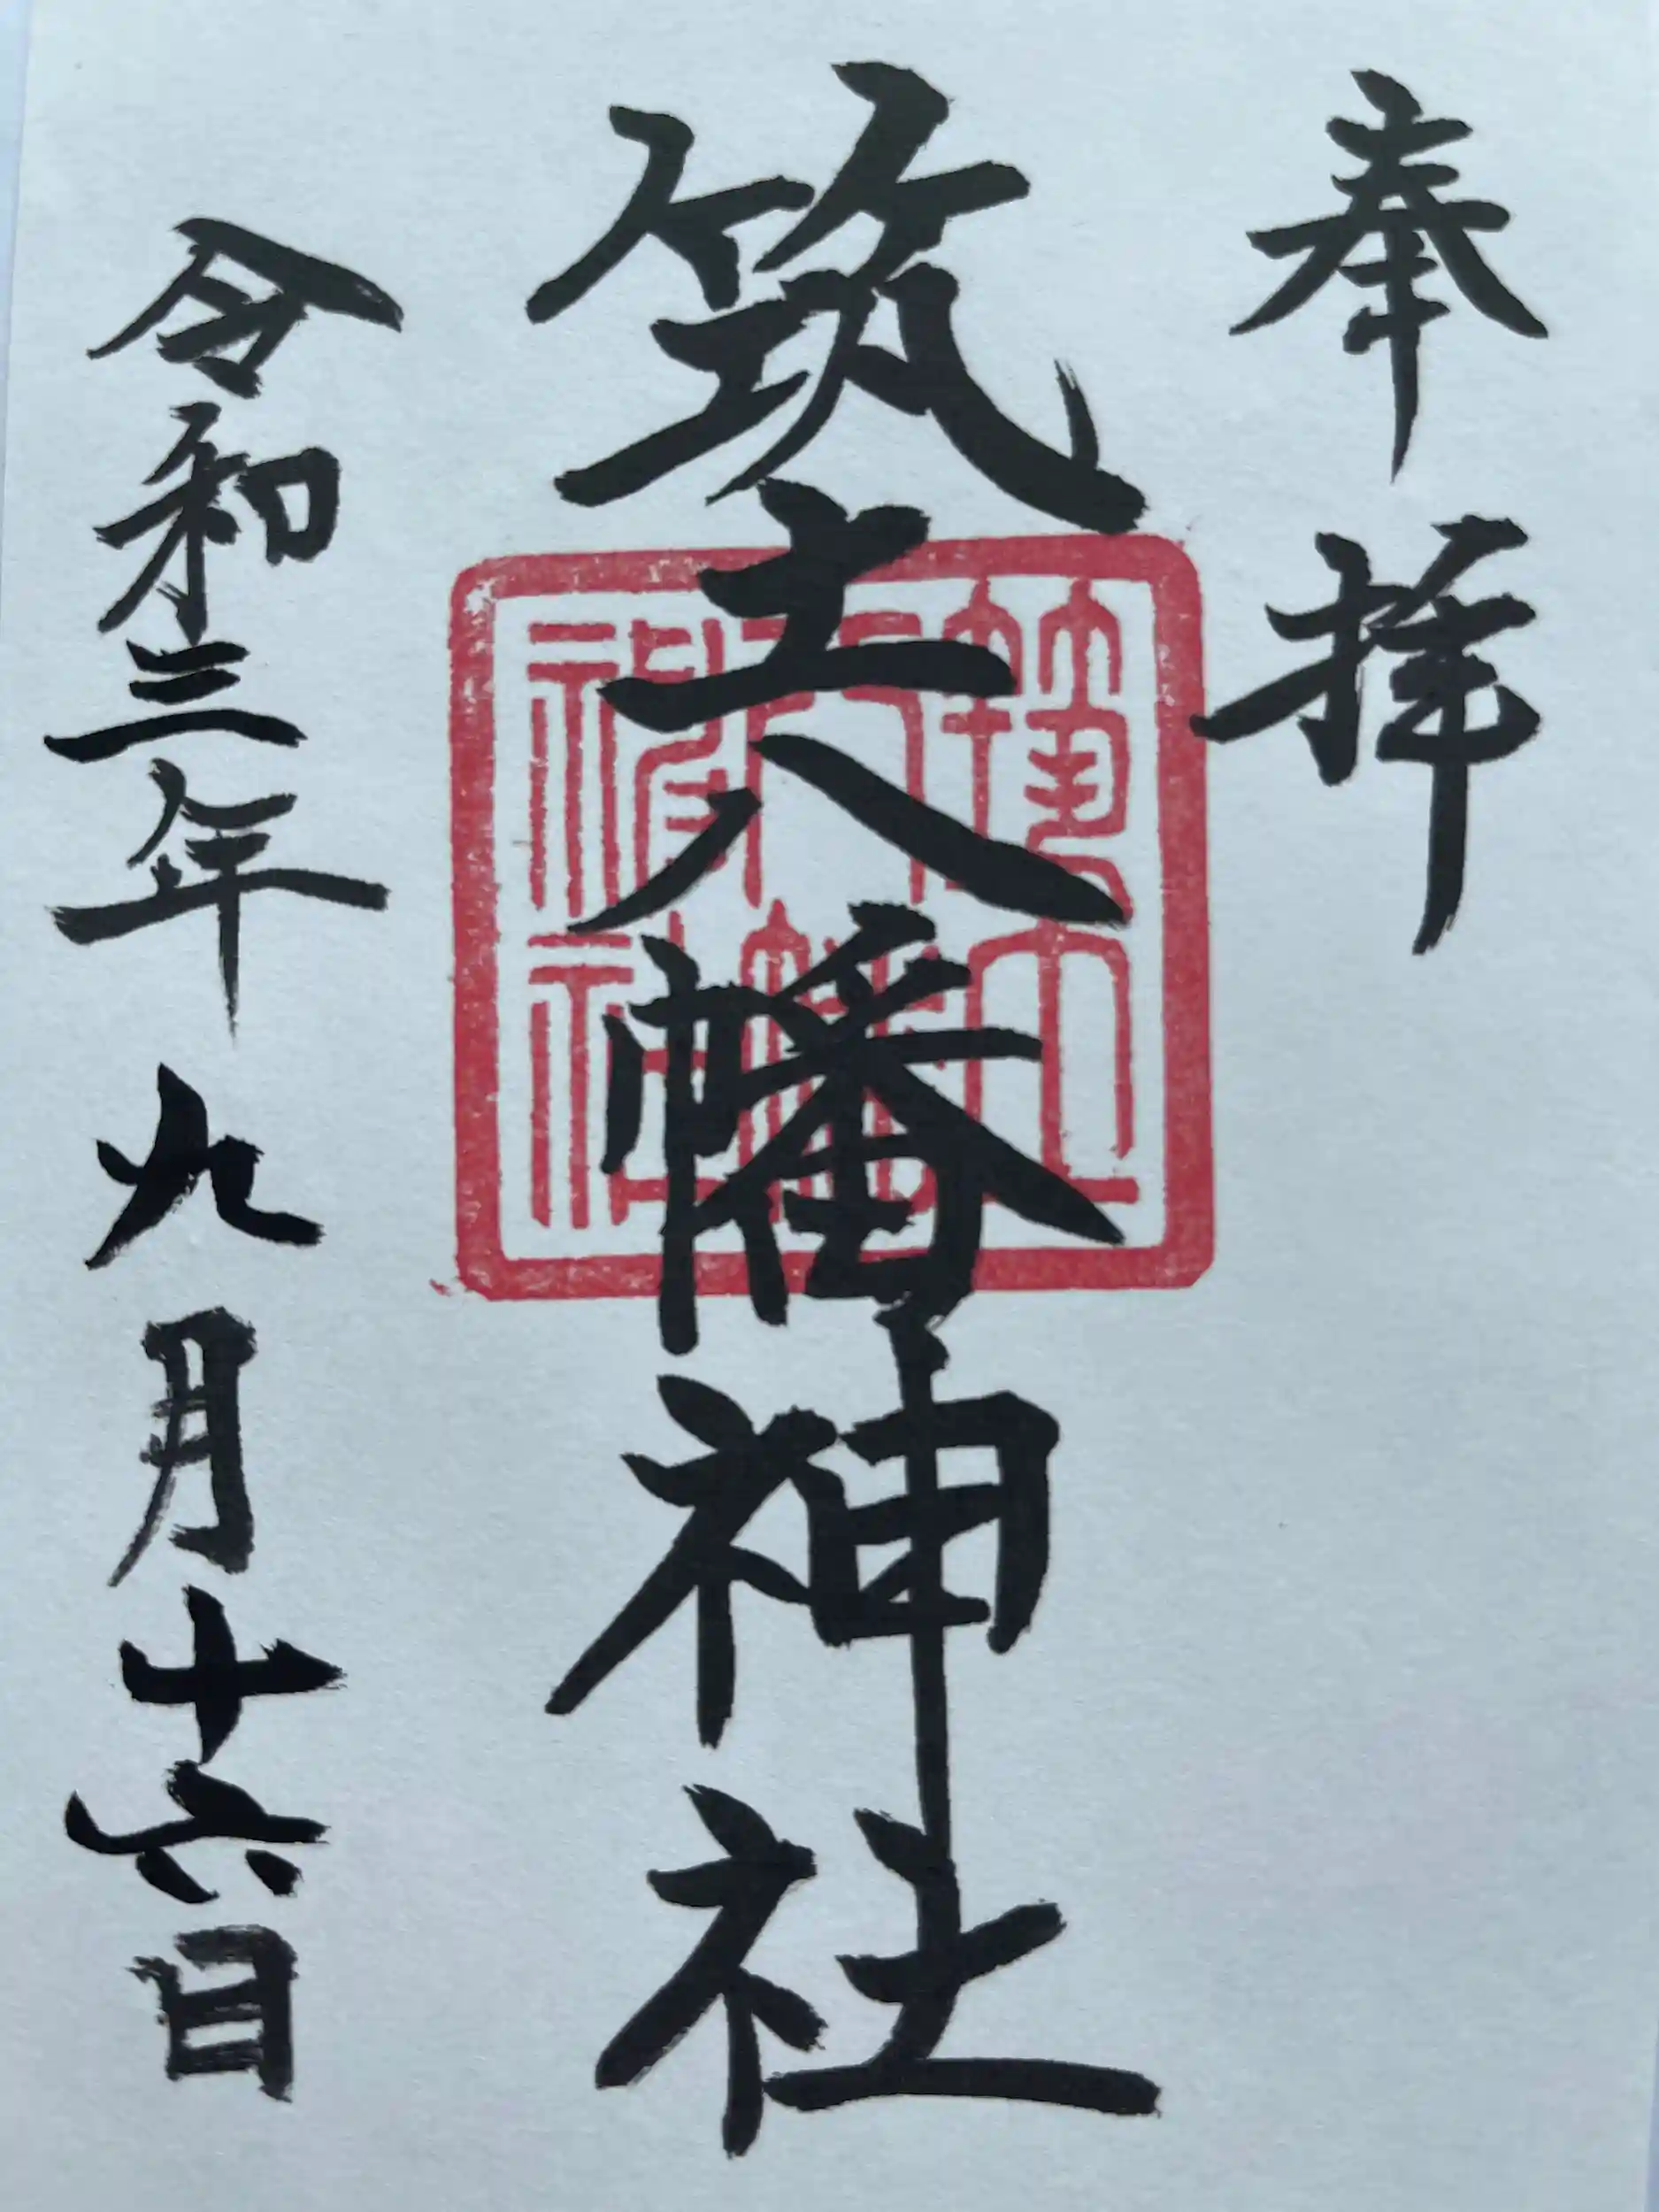 奉拝
筑土八幡神社
令和三年九月十六日
筑土八幡神社